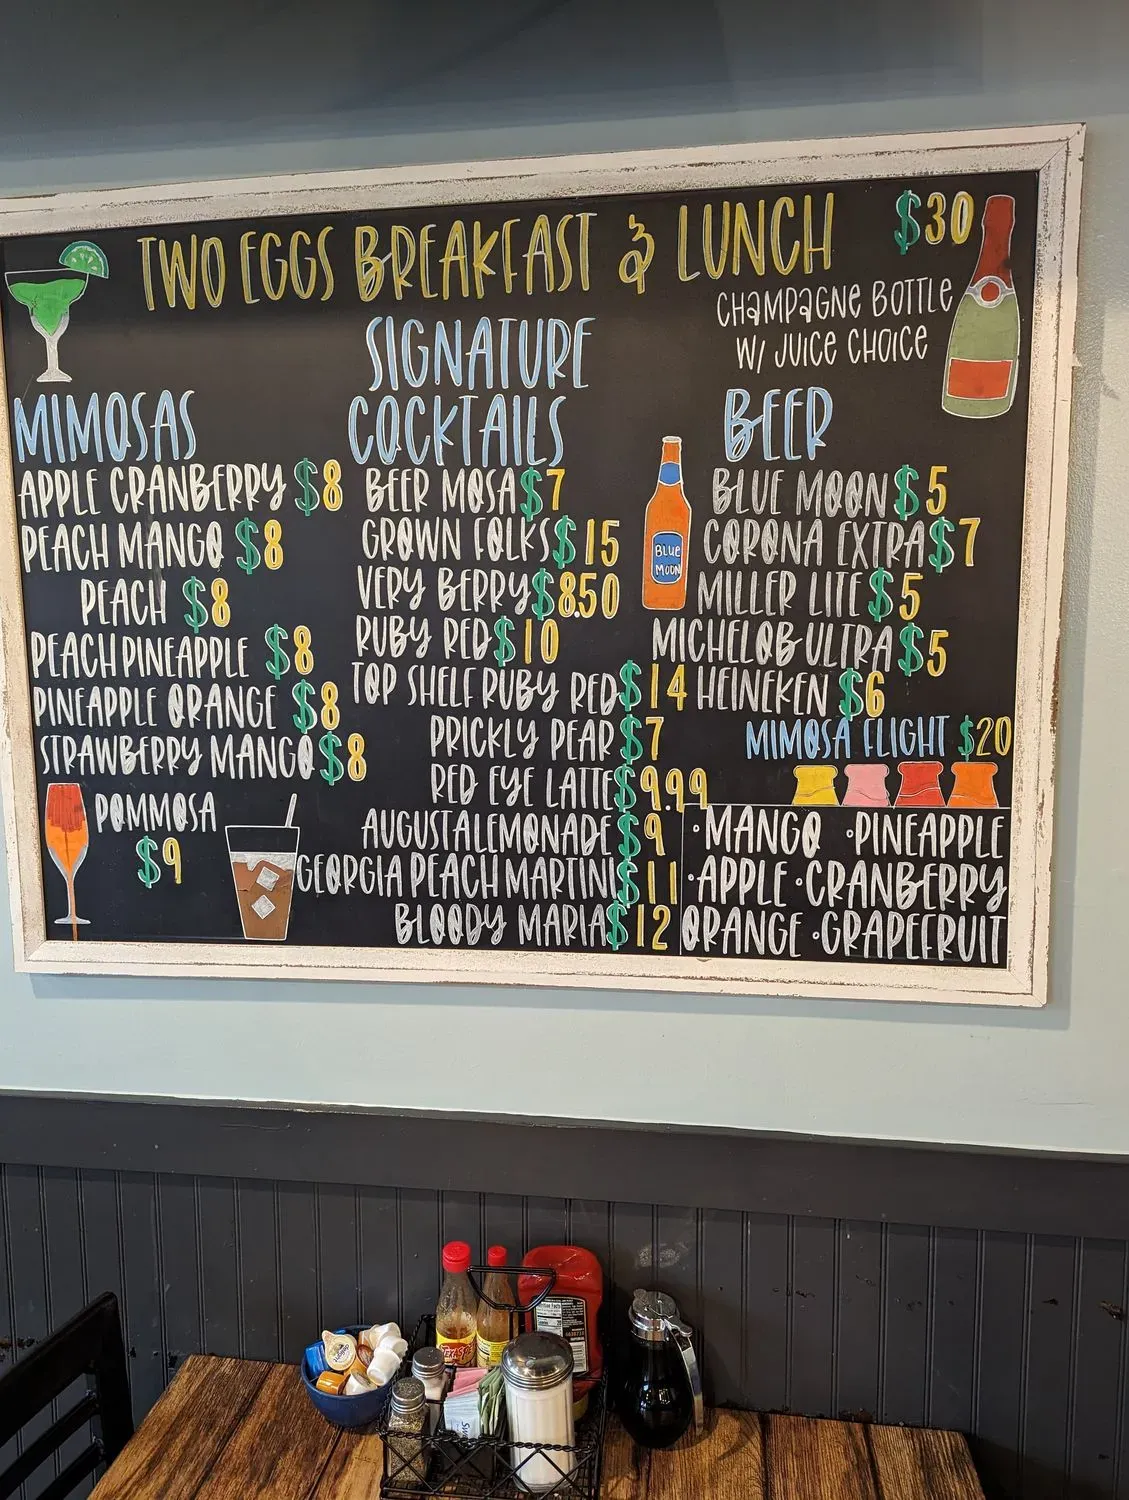 TWO EGGS BREAKFAST & LUNCH
$30
CHAMPAGNE BOTTLE
W/ JUICE CHOICE
MIMOSAS
APPLE CRANBERRY $8
PEACH MANGO $8
PEACH $8
PEACH PINEAPPLE $8
PINEAPPLE ORANGE $8
STRAWBERRY MANGO $8
POMMOSA
$9
SIGNATURE
COCKTAILS
BEER MOSA $7
GROWN FOLKS $15
VERY BERRY $8.50
RUBY RED $10
TOP SHELF RUBY RED $14
PRICKLY PEAR $7
RED EYE LATTE $9.99
AUGUSTA LEMONADE $9
GEORGIA PEACH MARTINI $11
BLOODY MARIA $12
BEER
BLUE MOON $5
CORONA EXTRA $7
MILLER LITE $5
MICHELOB ULTRA $5
HEINEKEN $6
BLUE
MOON
MIMOSA FLIGHT $20
·MANGO ·PINEAPPLE
·APPLE ·CRANBERRY
ORANGE ·GRAPEFRUIT